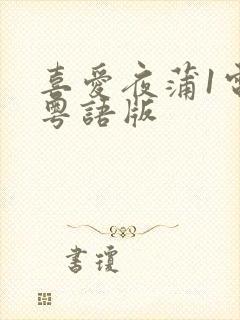 喜愛夜蒲1電
粵語版
書瓊